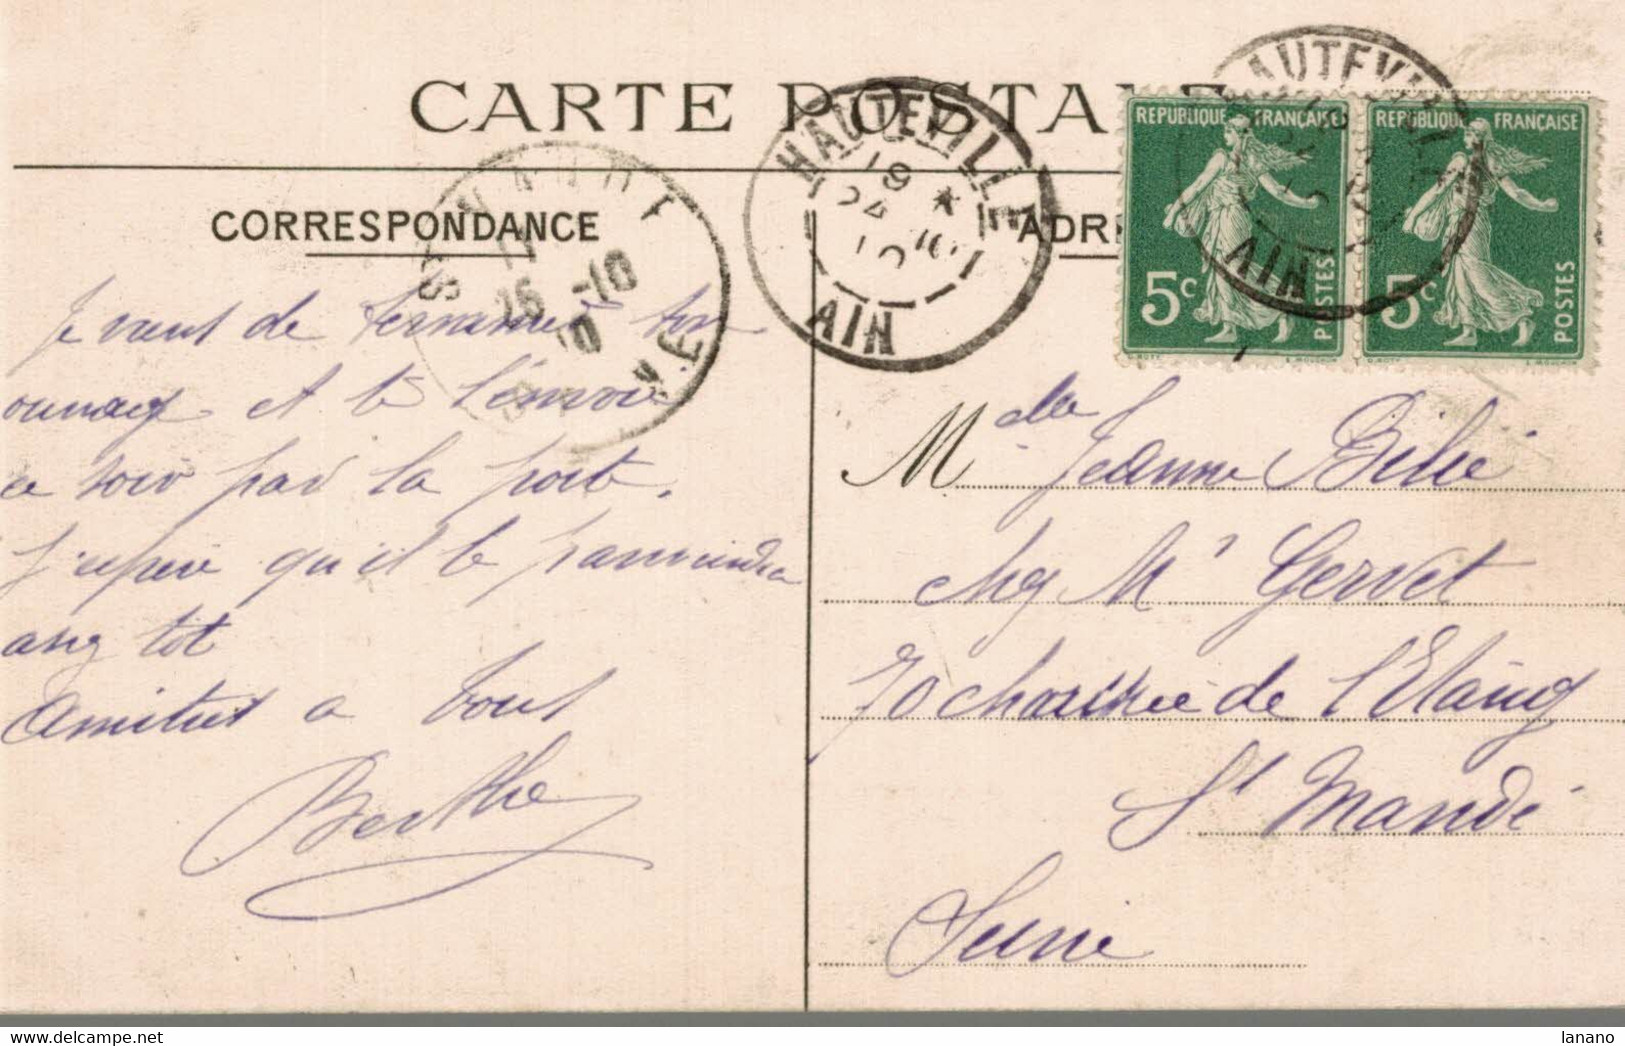 CARTE POSTALE
CORRESPONDANCE
ADR
HAUTEVILLE
19
24 10
10
AIN
HAUTEVILLE
AIN
ST MANDE
25 -10
10
SEINE
REPUBLIQUE FRANÇAISE
5c
POSTES
REPUBLIQUE FRANÇAISE
5c
POSTES
Je vient de terminer ton
ouvrage et te l'envoie
ce soir par la poste.
J'espère qu'il te parviendra
assez tot
Amitiés a tous
Berthe
Mdlle Jeanne
chez Mr Gervet
70 chaussée de l'Etang
St Mandé
Seine
lanano